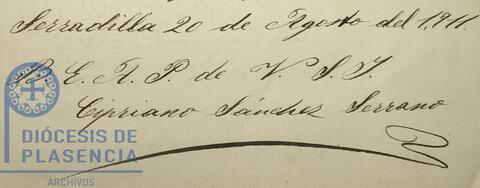 Serradilla 20 de Agosto del 1,911.
B. E. A. P. de V. S. I.
Cipriano Sánchez Serrano
DIÓCESIS DE
PLASENCIA
ARCHIVOS